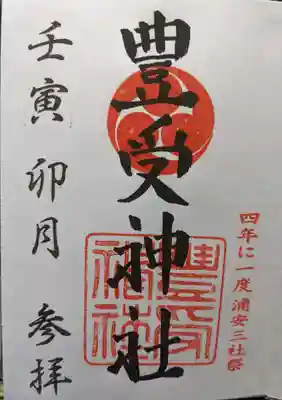 四年に一度 浦安三社祭
豊受神社
豊受神社
壬寅 卯月 参拝